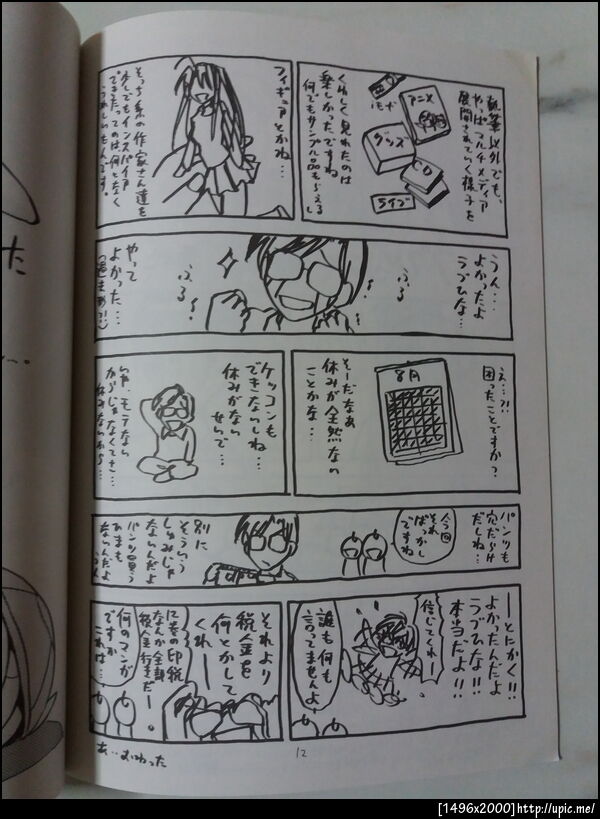 執筆以外でも、
やっぱマルチメディア
展開されていく様子を
アニメ
グッズ
CD
ライブ
くわしく見れたのは
楽しかったですね
何でもサンプル品もらえるし
フィギュアとかね…
そっち系の作家さん達を
少しでもインスパイア
できたってのは何となく
うれしいもんです。
うん…
よかったよ
ラブひな…
ふる
ふる
やって
よかった…
え…?!
困ったことですか?
8月
そーだなあ
休みが全然ないの
ことかな…
ケッコンも
できないしね…
休みがない
せいで…
いや、モテない
からじゃなくてさ…
休みないから…
パンツも
穴だらけ
だしね…
今回
そればっかし
ですね
別に
そういう
しゅみじゃ
ないんだよ
あまも
パンツ買う
ないんだよ
ーとにかく!!
よかったんだよ
ラブひな!!
本当だよ!!
信じてくれー
誰も何も
言ってませんよ
それより
税金を
何とかして
くれー
12巻の印税
なんか全部
税金行きだー。
何のマンガ
ですか
これは…
あ…おわった
12
た
[1496x2000]http://upic.me/